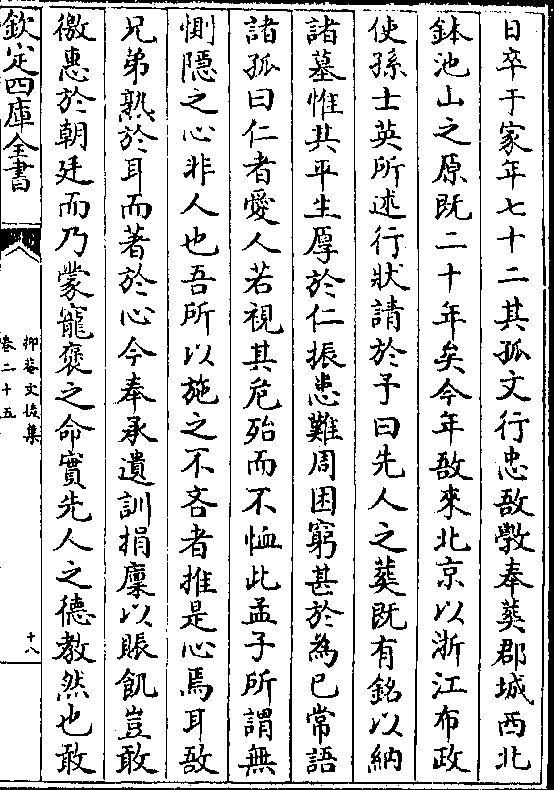 日卒于家年七十二其孤文行忠敔斅奉葬郡城西北
鉢池山之原既二十年矣今年敔來北京以浙江布政
使孫士英所述行狀請於予曰先人之葬既有銘以納
諸墓惟其平生厚於仁振患難周困窮甚於為已常語
諸孤曰仁者愛人若視其危殆而不恤此孟子所謂無
惻隱之心非人也吾所以施之不吝者推是心焉耳敔
兄弟熟於耳而著於心今奉承遺訓捐廩以賑飢豈敢
徼惠於朝廷而乃蒙寵褒之命實先人之德教然也敢
欽定四庫全書
抑菴文後集
卷二十五
十八